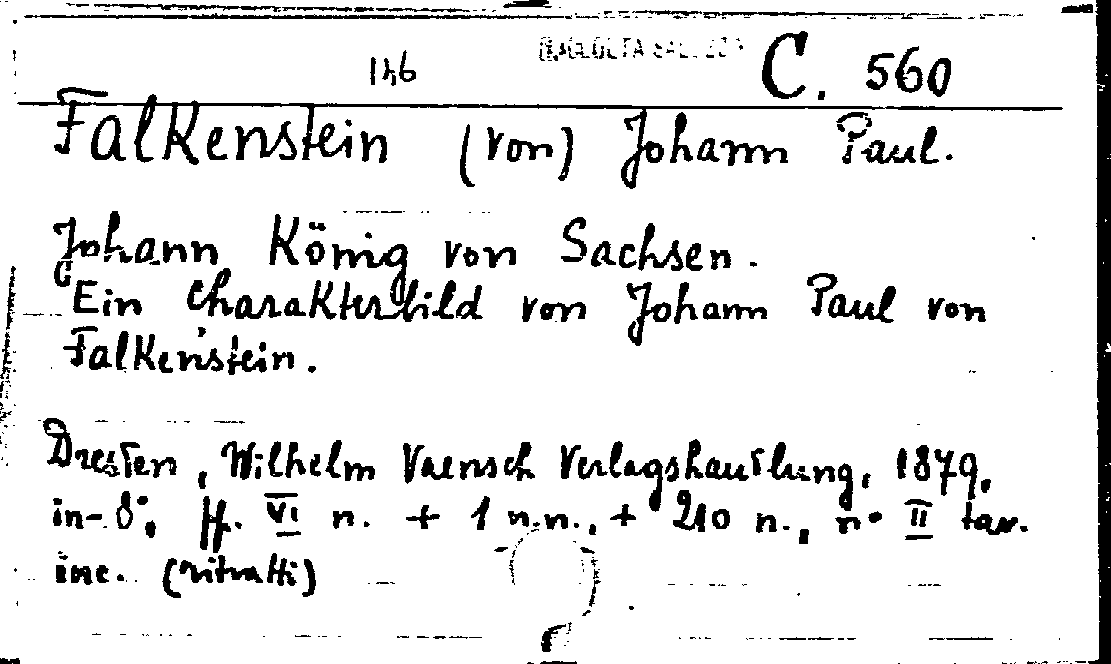 146 C. 560
Falkenstein (von) Johann Paul.
Johann König von Sachsen.
Ein Charakterbild von Johann Paul von
Falkenstein.
Dresden, Wilhelm Baensch Verlagshandlung, 1879,
in-8°, pp. VI n. + 1 n.n., + 210 n., n° II tav.
inc. (ritratti)